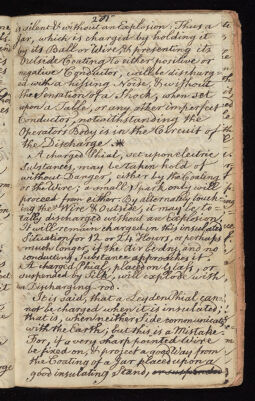 201
silent & without an Explosion; Thus a
Jar, which is charged by holding it
by its Ball or Wire & presenting its
Outside Coating to either positive or
negative Conductor, will be discharg=
ed with a hissing Noise, & without
the Sensation of a Shock; when set
upon a Table, or any other imperfect
Conductor, notwithstanding the
Operators Body is in the Circuit of
the Discharge.
A charged Phial, set upon electric
Substances, may be taken hold of,
without Danger, either by the Coating
or the Wire; a small Spark only will
proceed from either. By alternately touch=
ing the Wire & Outside, it may be to=
tally discharged without an Explosion.
It will remain charged in this insulated
Situation for 12 or 24 Hours, or perhaps
much longer, if the Air be dry, and no
conducting Substance approaches it.
A charged Phial, placed on Glass, or
suspended by Silk, will explode with
a Discharging rod.
It is said, that a Leyden Phial can=
not be charged when it is insulated;
that is, when neither Side communicates
with the Earth; but this is a Mistake.
For, if a very sharp pointed Wire
be fixed on, & project a good Way from
the Coating of a Jar placed upon a
good insulating Stand, or suspended